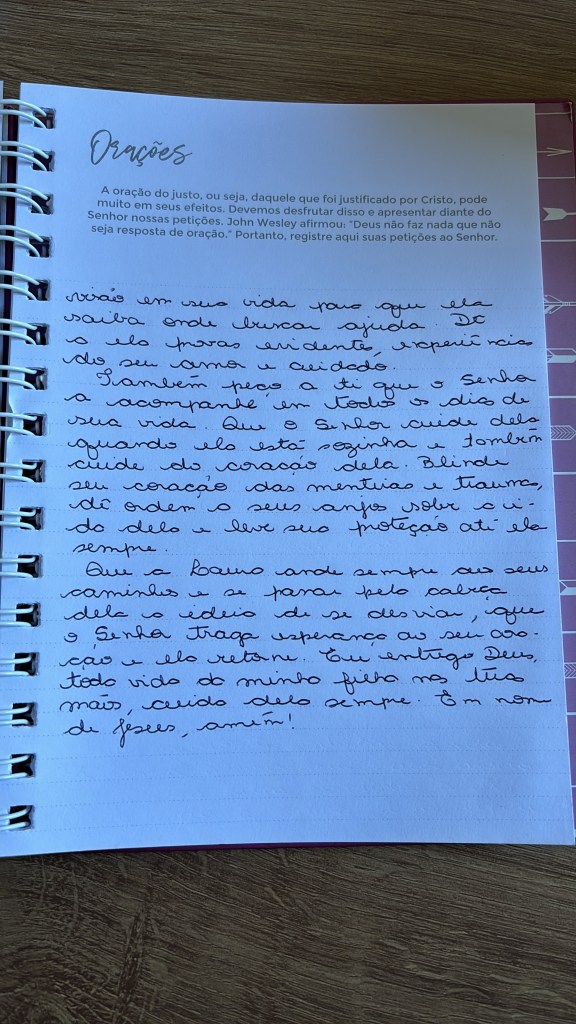 Orações
A oração do justo, ou seja, daquele que foi justificado por Cristo, pode
muito em seus efeitos. Devemos desfrutar disso e apresentar diante do
Senhor nossas petições. John Wesley afirmou: "Deus não faz nada que não
seja resposta de oração." Portanto, registre aqui suas petições ao Senhor.
virão em sua vida para que ela
saiba onde buscar ajuda. Dê
a ela provas evidente, experiências
do seu amor e cuidado.
Também peço a ti que o Senhor
a acompanhe em todos os dias de
sua vida. Que o Senhor cuide dela
quando ela está sozinha e também
cuide do coração dela. Blinde
seu coração das mentiras e traumas,
dê ordem a seus anjos sobre a vi-
da dela e leve sua proteção até ela
sempre.
Que a Laura ande sempre ao seus
caminhos e se passar pela cabeça
dela a ideia de se desviar, que
o Senhor traga esperança ao seu cora-
ção e ela retorne. Eu entrego Deus,
toda vida da minha filha nas tuas
mãos, cuida dela sempre. Em nome
de Jesus, amém!